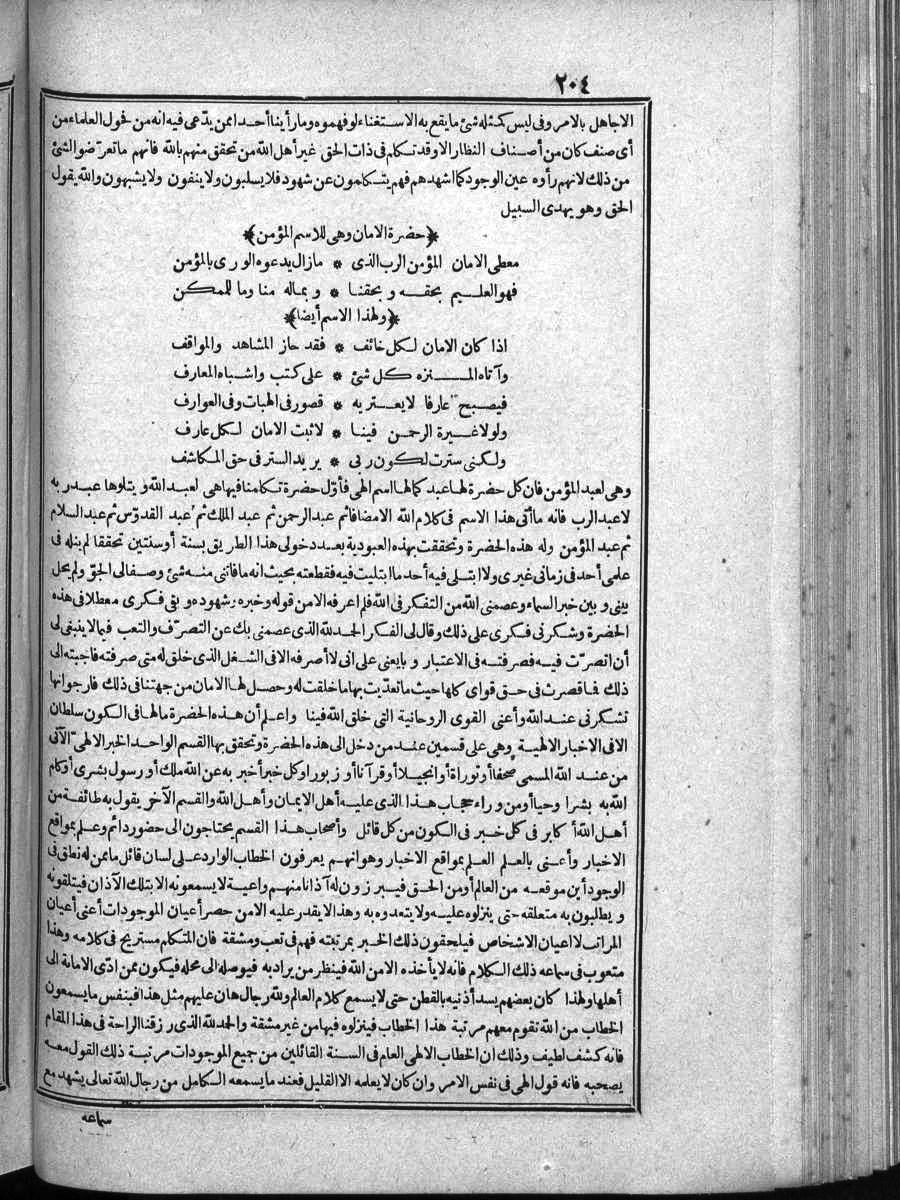 ٢٠٤
الاجاهل بالامر وفى ليس كمثله شئ ما يقع به الاستغناء لو فهموه وما رأينا أحدا ممن يدّعى فيه انه من فحول العلماء من
أى صنف كان من أصناف النظار الا وقد تكلم فى ذات الحق غير أهل الله من تحقق منهم بالله فانهم ما تعرّضوا لشئ
من ذلك لانهم رأوه عين الوجود كما اشهدهم فهم يتكلمون عن شهود فلا يسلبون ولا ينفون ولا يشبهون والله يقول
الحق وهو يهدى السبيل
﴿حضرة الامان وهى للاسم المؤمن﴾
معطى الامان المؤمن الرب الذى * مازال يدعوه الورى بالمؤمن
فهو العليم بحقه وبحقنا * وبماله منا وما للممكن
﴿ولهذا الاسم أيضا﴾
اذا كان الامان لكل خائف * فقد حاز المشاهد والمواقف
وآتاه المنزه كل شئ * على كتب واشباه المعارف
فيصبح عارفا لا يعتريه * قصور فى الهبات وفى العوارف
ولولا غيرة الرحمن فينا * لاثبت الامان لكل عارف
ولكنى سترت لكون ربى * يريد الستر فى حق المكاشف
وهى لعبد المؤمن فان كل حضرة لها عبد كما لها اسم الهى فأوّل حضرة تكلمنا فيها هى لعبد الله ويتلوها عبد ربه
لا عبد الرب فانه ما أتى هذا الاسم فى كلام الله الا مضافا ثم عبد الرحمن ثم عبد الملك ثم عبد القدّوس ثم عبد السلام
ثم عبد المؤمن وله هذه الحضرة وتحققت بهذه العبودية بعد دخولى هذا الطريق بسنة أو سنتين تحققا لم ينله فى
علمى أحد فى زمانى غيرى ولا ابتلى فيه أحد ما ابتليت فيه فقطعته بحيث انه ما فاتنى منه شئ وصفا لى الجوّ ولم يحل
بينى وبين خبر السماء وعصمنى الله من التفكر فى الله فلم اعرفه الا من قوله وخبره وشهوده وبقى فكرى معطلا فى هذه
الحضرة وشكرنى فكرى على ذلك وقال لى الفكر الحمد لله الذى عصمنى بك عن التصرّف والتعب فيما لا ينبغى لى
أن اتصرّف فيه فصرفته فى الاعتبار وبايعنى على انى لا أصرفه الا فى الشغل الذى خلق له متى صرفته فاجبته الى
ذلك فما قصرت فى حق قواى كلها حيث ما تعدّيت بها ما خلقت له وحصل لها الامان من جهتنا فى ذلك فارجو انها
تشكرنى عند الله وأعنى القوى الروحانية التى خلق الله فينا واعلم أن هذه الحضرة ما لها فى الكون سلطان
الا فى الاخبار الالهية وهى على قسمين عند من دخل الى هذه الحضرة وتحقق بها القسم الواحد الخبر الالهى الآتى
من عند الله المسمى صحفا أو توراة أو انجيلا أو قرآنا أو زبورا وكل خبر أخبر به عن الله ملك أو رسول بشرى أو كلم
الله به بشرا وحيا أو من وراء حجاب هذا الذى عليه أهل الايمان وأهل الله والقسم الآخر يقول به طائفة من
أهل الله أكابر فى كل خبر فى الكون من كل قائل وأصحاب هذا القسم يحتاجون الى حضور دائم وعلم بمواقع
الاخبار وأعنى بالعلم العلم بمواقع الاخبار وهو انهم يعرفون الخطاب الوارد على لسان قائل ما ممن له نطق فى
الوجود أين موقعه من العالم أو من الحق فيبرزون له آذانا منهم واعية لا يسمعونه الا بتلك الآذان فيتلقونه
ويطلبون به متعلقه حتى ينزلوه عليه ولا يتعدوه به وهذا لا يقدر عليه الا من حصر أعيان الموجودات أعنى أعيان
المراتب لا اعيان الاشخاص فيلحقون ذلك الخبر بمرتبته فهم فى تعب ومشقة فان المتكلم مستريح فى كلامه وهذا
متعوب فى سماعه ذلك الكلام فانه لا يأخذه الا من الله فينظر من يراد به فيوصله الى محله فيكون ممن ادّى الامانة الى
أهلها ولهذا كان بعضهم يسد أذنيه بالقطن حتى لا يسمع كلام العالم ولله رجال هان عليهم مثل هذا فبنفس ما يسمعون
الخطاب من الله تقوم معهم مرتبة هذا الخطاب فينزلوه فيها من غير مشقة والحمد لله الذى رزقنا الراحة فى هذا المقام
فانه كشف لطيف وذلك ان الخطاب الالهى العام فى السنة القائلين من جميع الموجودات مرتبة ذلك القول معه
يصحبه فانه قول الهى فى نفس الامر وان كان لا يعلمه الا القليل فعند ما يسمعه الكامل من رجال الله تعالى يشهد مع
سماعه